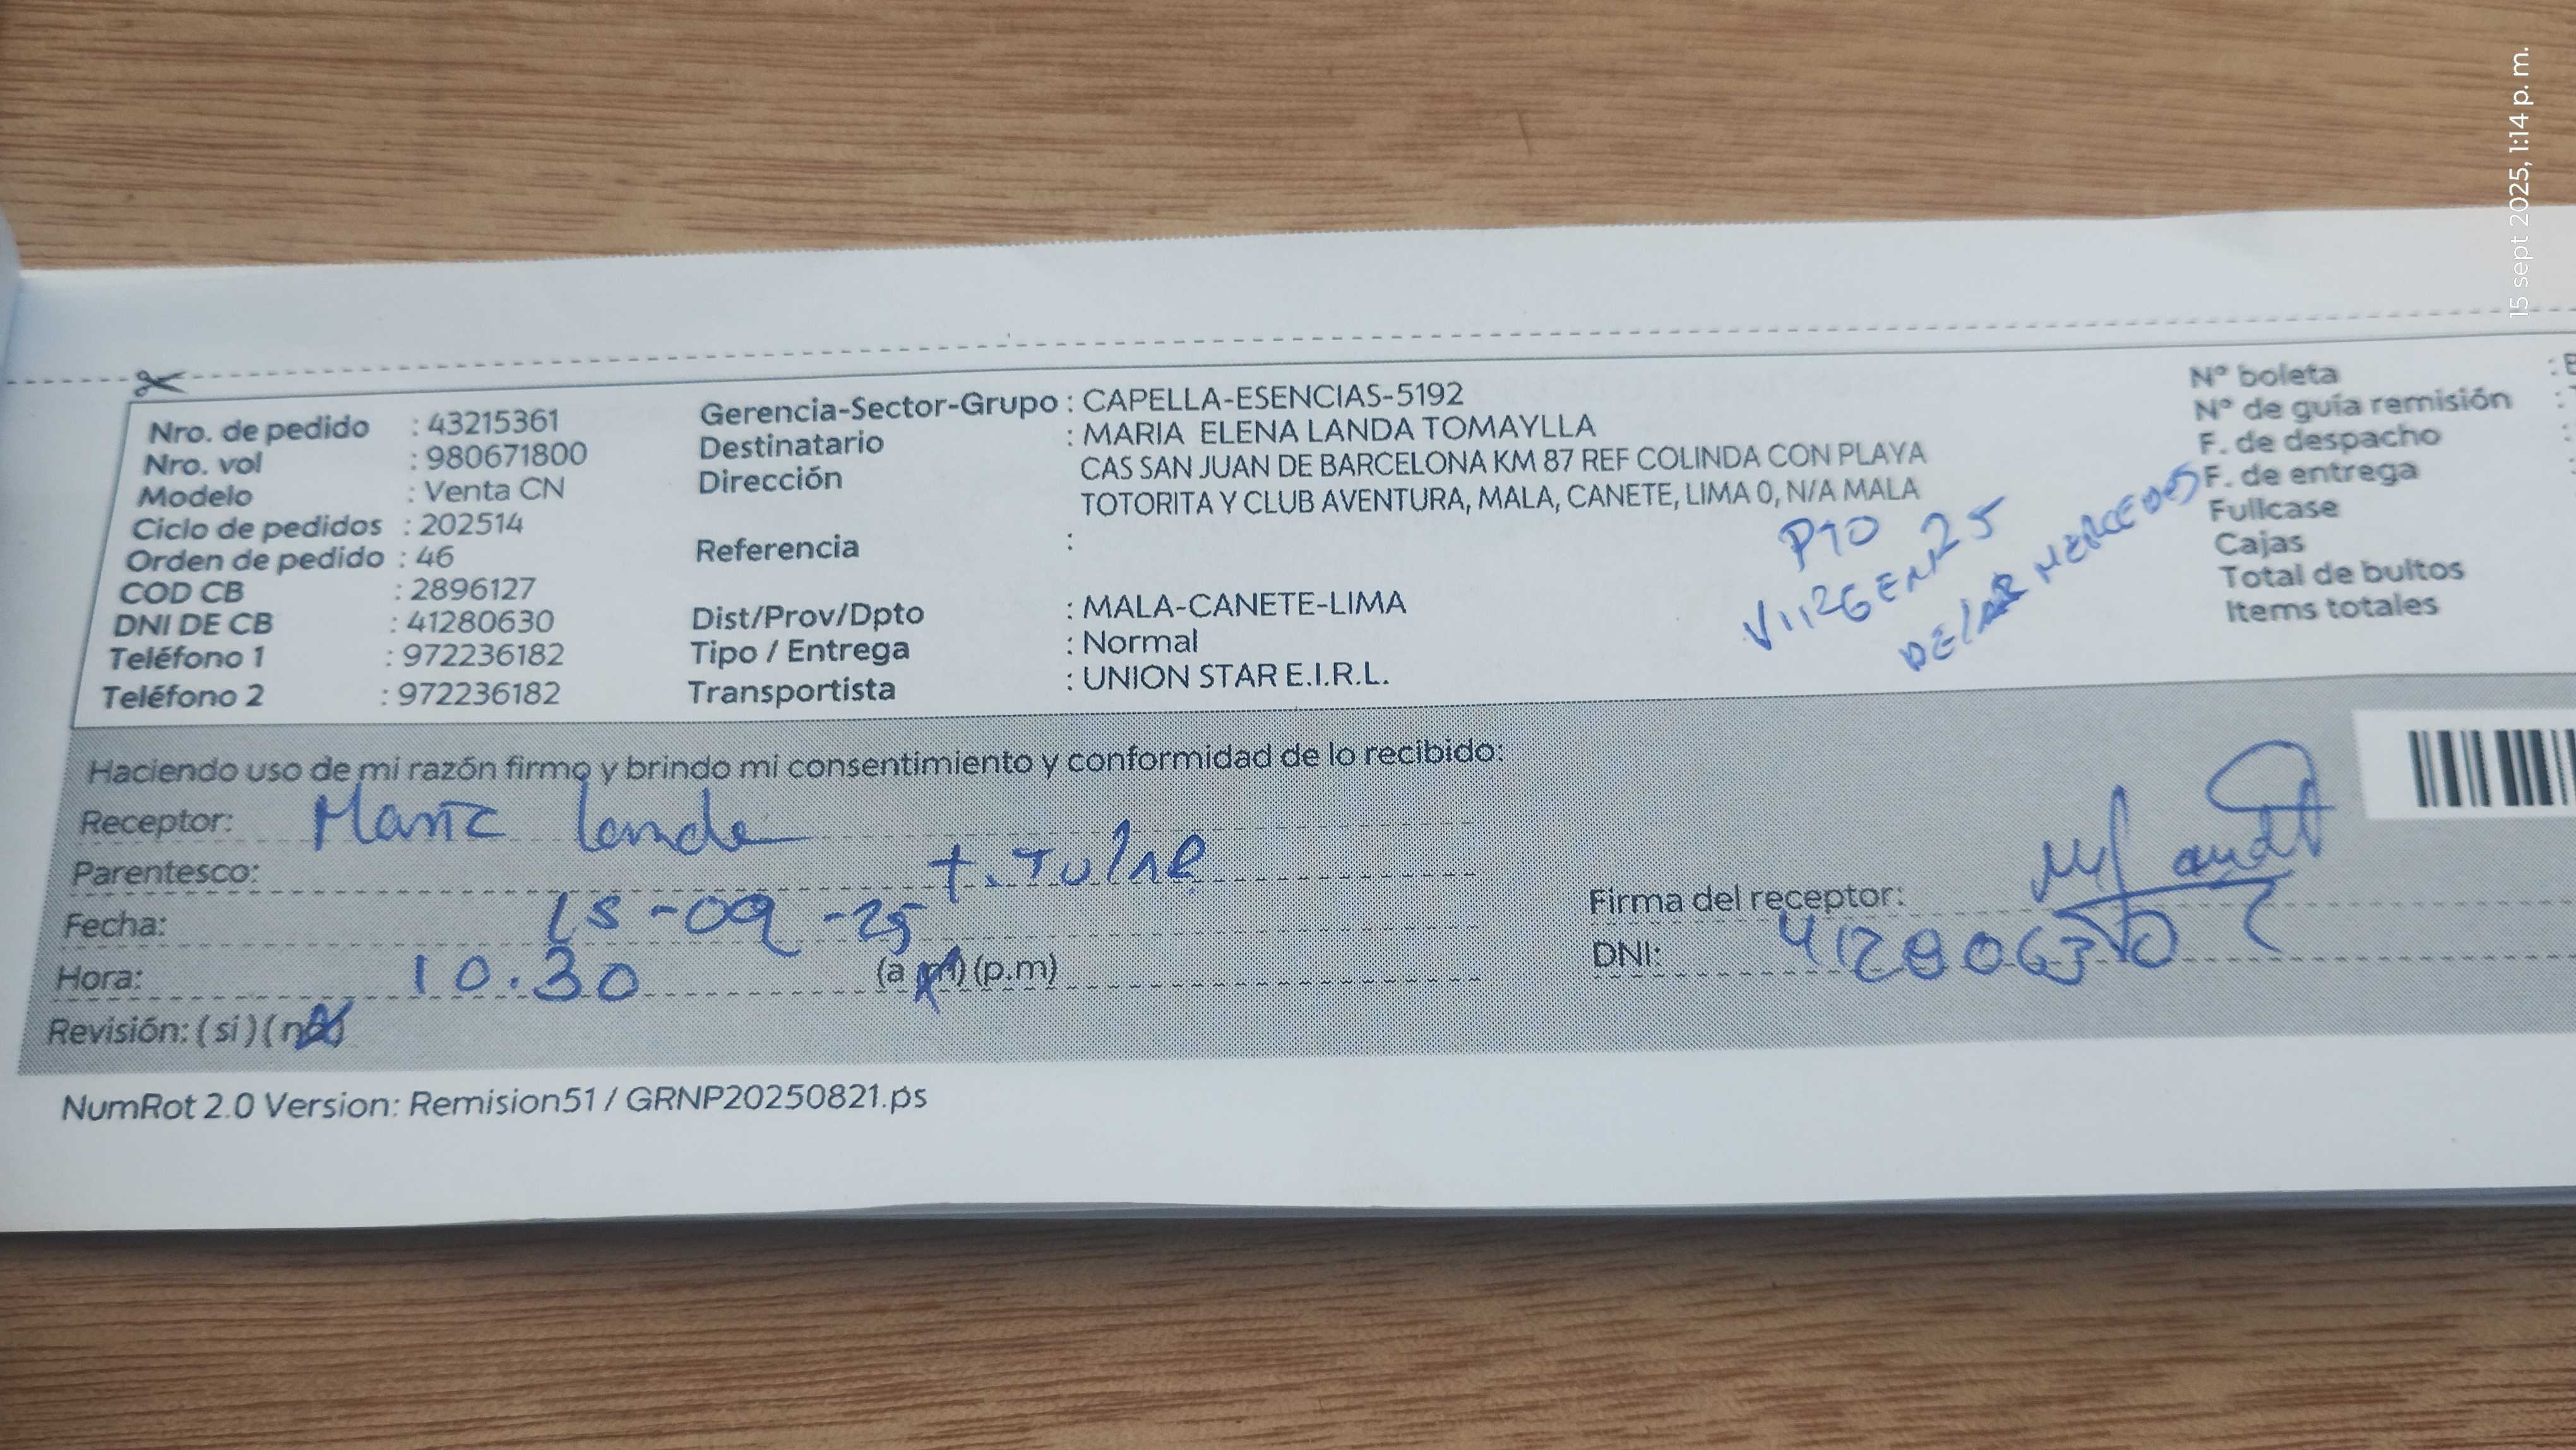 15 sept 2025, 1:14 p. m.
Nro. de pedido : 43215361
Nro. vol : 980671800
Modelo : Venta CN
Ciclo de pedidos : 202514
Orden de pedido : 46
COD CB : 2896127
DNI DE CB : 41280630
Teléfono 1 : 972236182
Teléfono 2 : 972236182
Gerencia-Sector-Grupo : CAPELLA-ESENCIAS-5192
Destinatario : MARIA ELENA LANDA TOMAYLLA
Dirección CAS SAN JUAN DE BARCELONA KM 87 REF COLINDA CON PLAYA
TOTORITA Y CLUB AVENTURA, MALA, CANETE, LIMA 0, N/A MALA
Referencia :
Dist/Prov/Dpto : MALA-CANETE-LIMA
Tipo / Entrega : Normal
Transportista : UNION STAR E.I.R.L.
VIRGEN 25
MERCEDES
N° boleta
N° de guía remisión
F. de despacho
F. de entrega
Fullcase
Cajas
Total de bultos
Items totales
Haciendo uso de mi razón firmo y brindo mi consentimiento y conformidad de lo recibido:
Receptor: Maria Landa
Parentesco:
Fecha: 15-09-25
Hora: 10.30 (a.m) (p.m)
Revisión: (si) (no)
Firma del receptor:
DNI: 41280630
NumRot 2.0 Version: Remision51 / GRNP20250821.ps